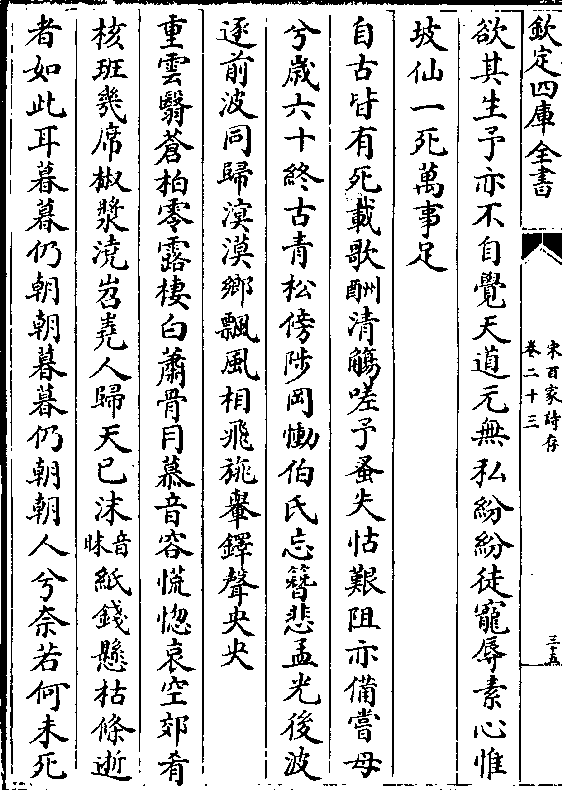 欽定四庫全書
宋百家詩存
卷二十三
三十五
欲其生予亦不自覺天道元無私紛紛徒寵辱素心惟
坡仙一死萬事足
自古皆有死載歌酬清觴嗟予蚤失怙艱阻亦備嘗母
兮歲六十終古青松傍陟岡慟伯氏忘簪悲孟光後波
逐前波同歸溟漠鄉飄風相飛旐鼙鐸聲央央
重雲翳蒼柏零露棲白蕭骨月慕音容慌惚哀空郊肴
核班幾席椒漿澆岧嶤人歸天已沫音昧紙錢懸枯條逝
者如此耳暮暮仍朝朝暮暮仍朝朝人兮奈若何未死